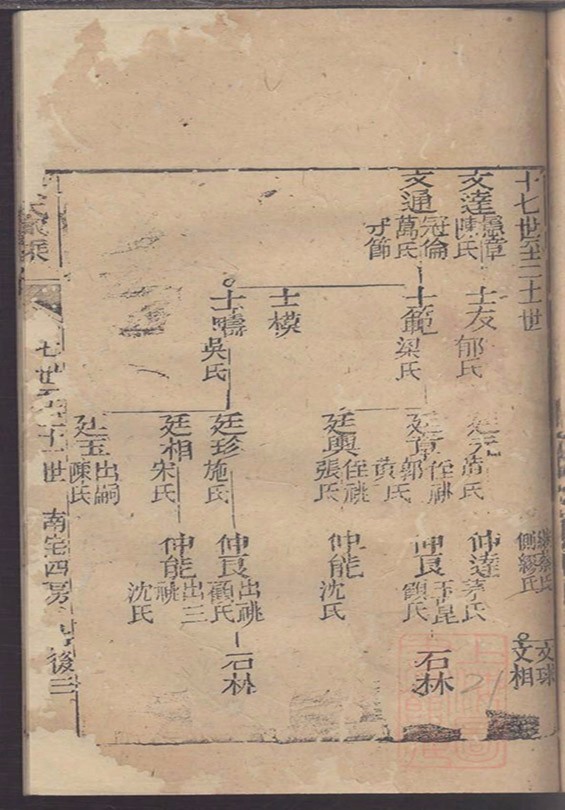 十七世至二十一世
繼蔡氏
側繆氏
文球
文相
文達
憲章
陳氏
士友
郁氏
廷元
浦氏
仲達
茅氏
文通
冠倫
萬氏
守節
士範
梁氏
廷章
侄祧
郭氏
黃氏
仲良
玉崑
顧氏
石林
廷興
侄祧
張氏
仲能
沈氏
士模
士疇
吳氏
廷珍
施氏
仲良
出祧
顧氏
石林
廷相
宋氏
仲能
出三
祧
沈氏
廷玉
出嗣
陳氏
七世至二十一世
南宅四房
後三